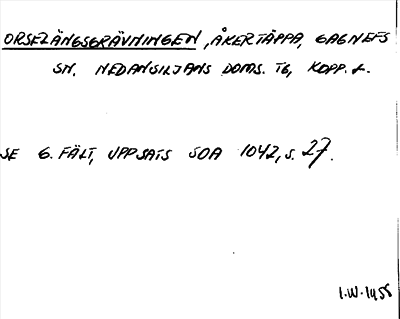 ORSELÄNGSGRÄVNINGEN, ÅKERTÄPPA, GAGNEFS
SN. NEDANSILJANS DOMS. TG, KOPP. L.
SE G. FÄLT, UPPSATS SOA 1042, S. 27.
I.W. 1958